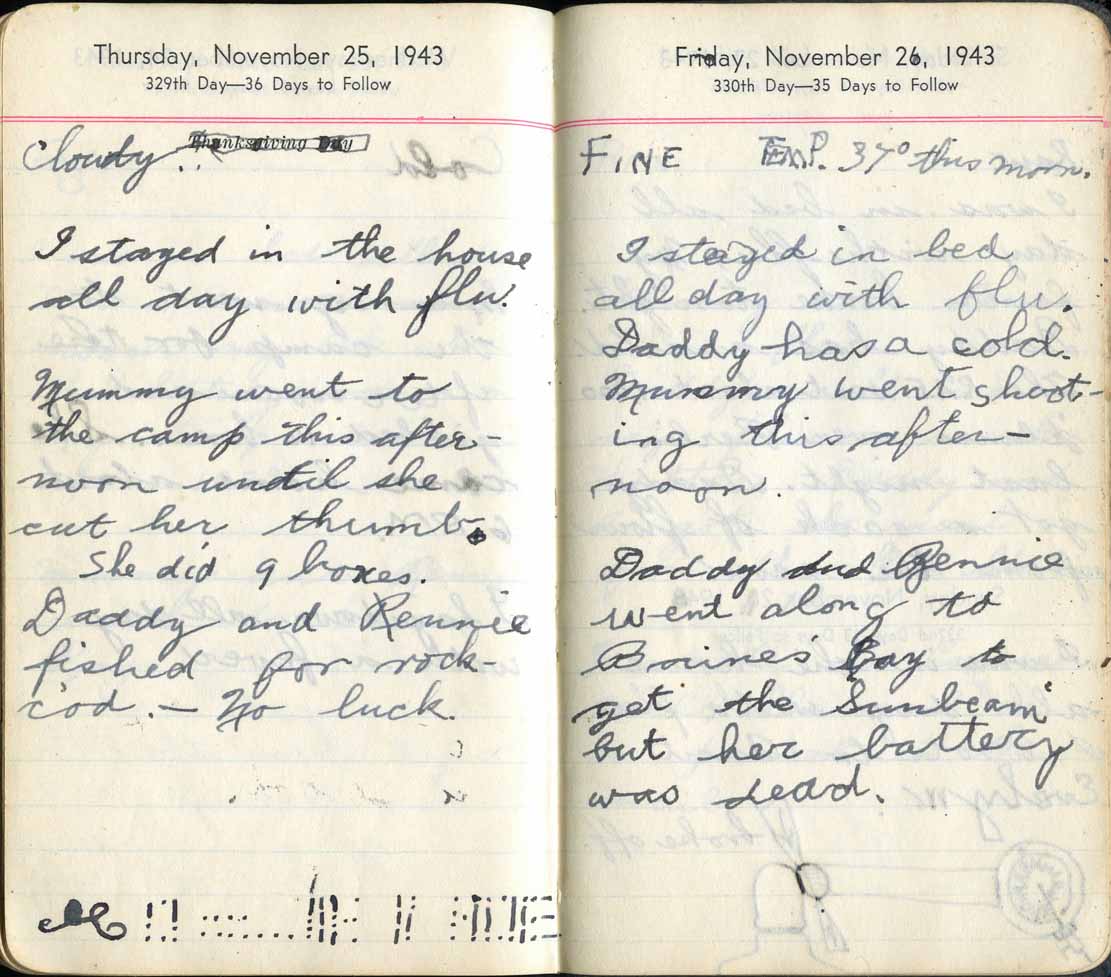 Thursday, November 25, 1943
329th Day—36 Days to Follow
Thanksgiving Day
Cloudy
I stayed in the house
all day with flu.
Mummy went to
the camp this after-
noon until she
cut her thumb.
She did 9 boxes.
Daddy and Rennie
fished for rock-
cod. — No luck.
Friday, November 26, 1943
330th Day—35 Days to Follow
FINE TEMP. 37° this morn.
I stayed in bed
all day with flu.
Daddy has a cold.
Mummy went shoot-
ing this after-
noon.
Daddy and Rennie
went along to
Baines Bay to
get the Sunbeam
but her battery
was dead.